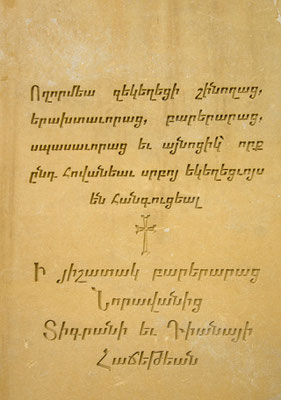 Ողորմեա զեկեղեցի շինողաց,
երախտաւորաց, բարերարաց,
սպասաւորաց եւ այնոցիկ՝ որք
ընդ հովանեաւ սրբոյ եկեղեցւոյս
են հանգուցեալ
Ի յիշատակ բարերարաց
Նորավանից
Տիգրանի եւ Դիանայի
Հաճեթեան